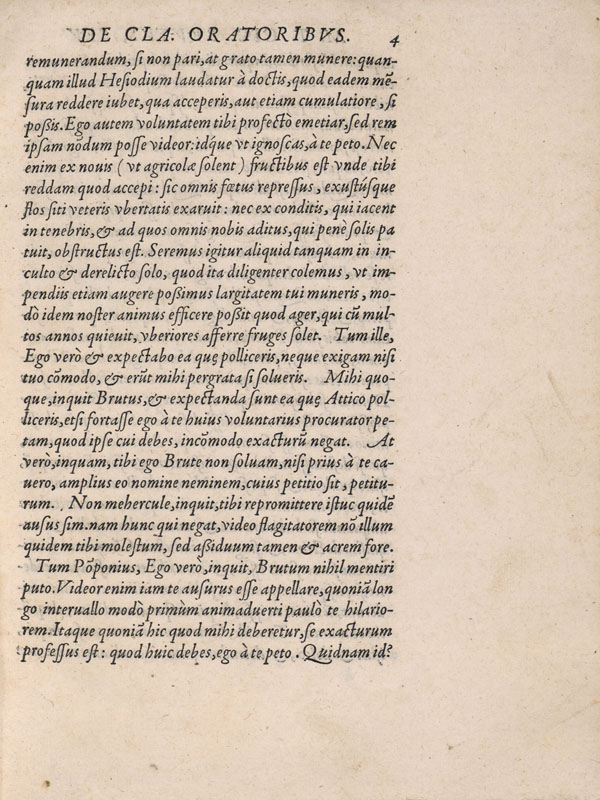 DE CLA. ORATORIBVS. 4
remunerandum, si non pari, at grato tamen munere: quan-
quam illud Hesiodium laudatur à doctis, quod eadem mē-
sura reddere iubet, qua acceperis, aut etiam cumulatiore, si
poßis. Ego autem voluntatem tibi profectò emetiar, sed rem
ipsam nōdum posse videor: idq́ue vt ignoscas, à te peto. Nec
enim ex nouis (vt agricolæ solent) fructibus est vnde tibi
reddam quod accepi: sic omnis fœtus repressus, exustúsque
flos siti veteris vbertatis exaruit: nec ex conditis, qui iacent
in tenebris, & ad quos omnis nobis aditus, qui penè solis pa
tuit, obstructus est. Seremus igitur aliquid tanquam in in-
culto & derelicto solo, quod ita diligenter colemus, vt im-
pendiis etiam augere poßimus largitatem tui muneris, mo-
dò idem noster animus efficere poßit quod ager, qui cū mul-
tos annos quieuit, vberiores afferre fruges solet. Tum ille,
Ego verò & expectabo ea quę polliceris, neque exigam nisi
tuo cōmodo, & erūt mihi pergrata si solueris. Mihi quo-
que, inquit Brutus, & expectanda sunt ea quę Attico pol-
liceris, etsi fortasse ego à te huius voluntarius procurator pe-
tam, quod ipse cui debes, incōmodo exacturū negat. At
verò, inquam, tibi ego Brute non soluam, nisi prius à te ca-
uero, amplius eo nomine neminem, cuius petitio sit, petitu-
rum. Non mehercule, inquit, tibi repromittere istuc quidē
ausus sim. nam hunc qui negat, video flagitatorem nō illum
quidem tibi molestum, sed aßiduum tamen & acrem fore.
Tum Pōponius, Ego verò, inquit, Brutum nihil mentiri
puto. Videor enim iam te ausurus esse appellare, quoniā lon
go interuallo modò primùm animaduerti paulò te hilario-
rem. Itaque quoniā hic quod mihi deberetur, se exacturum
professus est: quod huic debes, ego à te peto. Quidnam id?